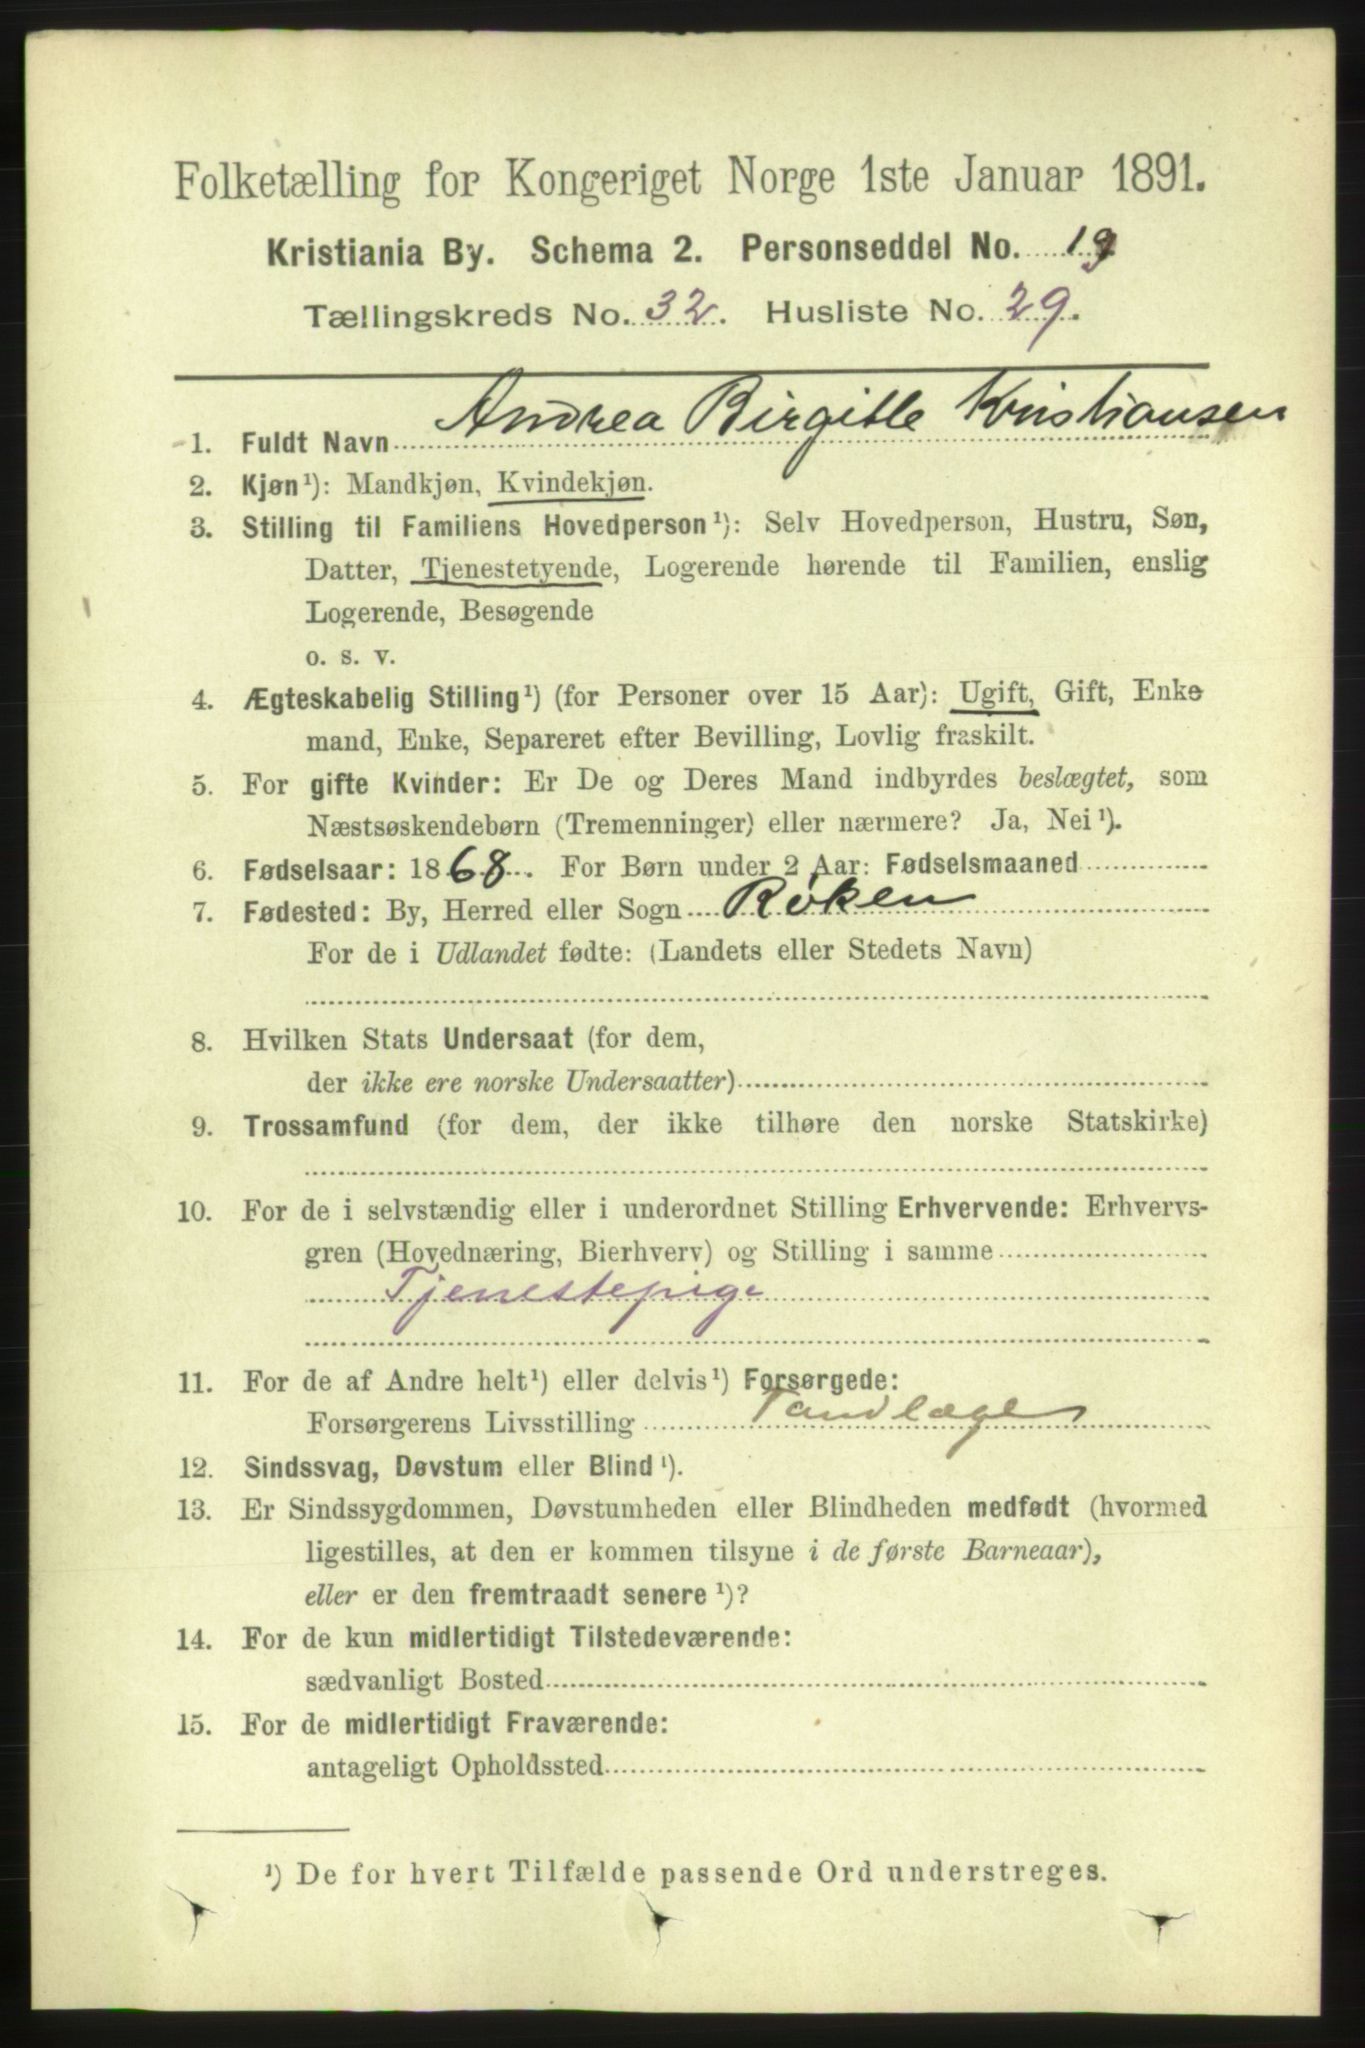 Folketælling for Kongeriget Norge 1ste Januar 1891.
Kristiania By. Schema 2. Personseddel No. 19
Tællingskreds No. 32. Husliste No. 29.
1. Fuldt Navn Andrea Birgitte Kristiansen
2. Kjøn¹): Mandkjøn, Kvindekjøn.
3. Stilling til Familiens Hovedperson¹): Selv Hovedperson, Hustru, Søn,
Datter, Tjenestetyende, Logerende hørende til Familien, enslig
Logerende, Besøgende
o. s. v.
4. Ægteskabelig Stilling¹) (for Personer over 15 Aar): Ugift, Gift, Enke
mand, Enke, Separeret efter Bevilling, Lovlig fraskilt.
5. For gifte Kvinder: Er De og Deres Mand indbyrdes beslægtet, som
Næstsøskendebørn (Tremenninger) eller nærmere? Ja, Nei¹).
6. Fødselsaar: 1868. For Børn under 2 Aar: Fødselsmaaned
7. Fødested: By, Herred eller Sogn Røken
For de i Udlandet fødte: (Landets eller Stedets Navn)
8. Hvilken Stats Undersaat (for dem,
der ikke ere norske Undersaatter)
9. Trossamfund (for dem, der ikke tilhøre den norske Statskirke)
10. For de i selvstændig eller i underordnet Stilling Erhvervende: Erhvervs-
gren (Hovednæring, Bierhverv) og Stilling i samme
Tjenestepige
11. For de af Andre helt¹) eller delvis¹) Forsørgede:
Forsørgerens Livsstilling Tandlæge
12. Sindssvag, Døvstum eller Blind¹).
13. Er Sindssygdommen, Døvstumheden eller Blindheden medfødt (hvormed
ligestilles, at den er kommen tilsyne i de første Barneaar),
eller er den fremtraadt senere¹)?
14. For de kun midlertidigt Tilstedeværende:
sædvanligt Bosted
15. For de midlertidigt Fraværende:
antageligt Opholdssted
¹) De for hvert Tilfælde passende Ord understreges.